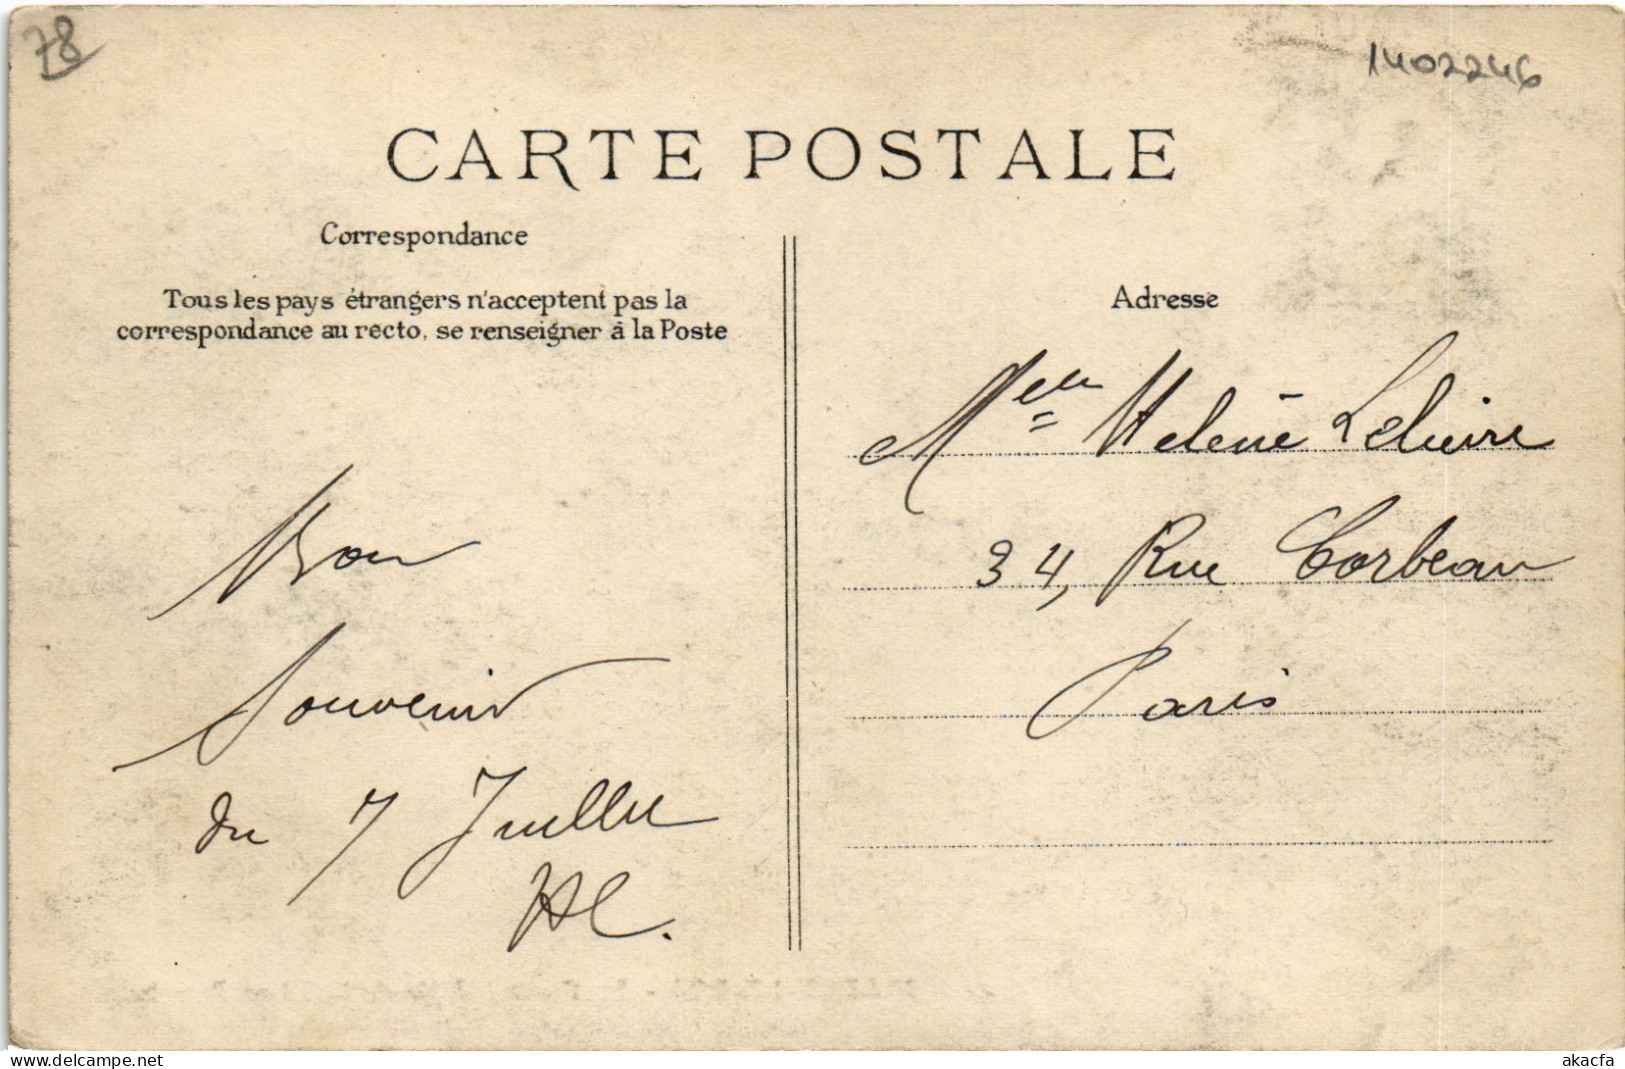 78
1402246
CARTE POSTALE
Correspondance
Tous les pays étrangers n'acceptent pas la
correspondance au recto, se renseigner à la Poste
Bon
Souvenir
du 7 Juillet
HL.
Adresse
Melle Helène Lelievre
34, Rue Corbeau
Paris
www.delcampe.net
akacfa